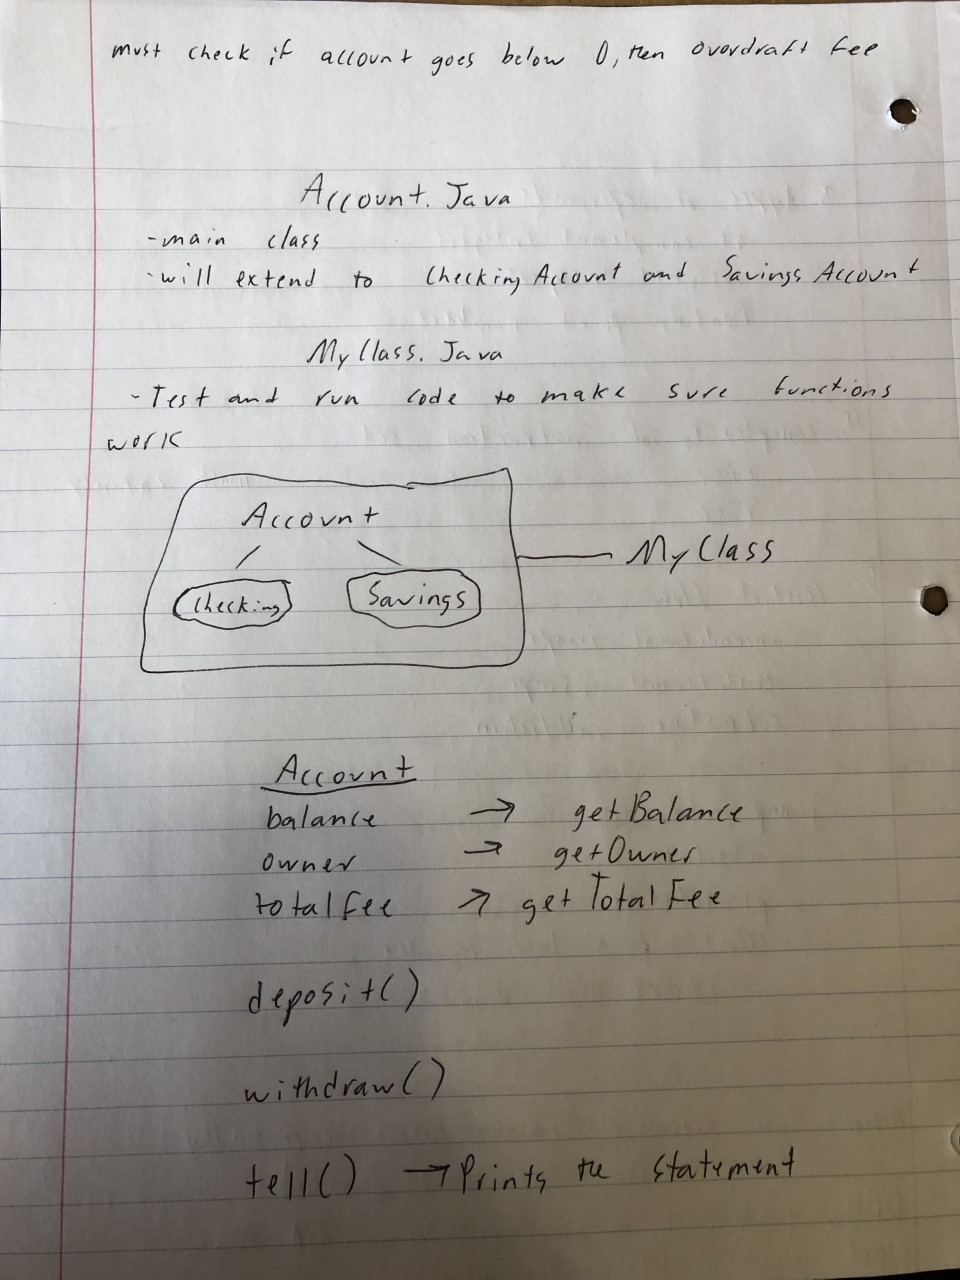 must check if account goes below 0, then overdraft fee
Account.Java
-main class
-will extend to Checking Account and Savings Account
MyClass.Java
-Test and run code to make sure functions
work
Account
Checking Savings
MyClass
Account
balance → getBalance
owner → getOwner
totalfee → getTotalFee
deposit()
withdraw()
tell() → Prints the statement